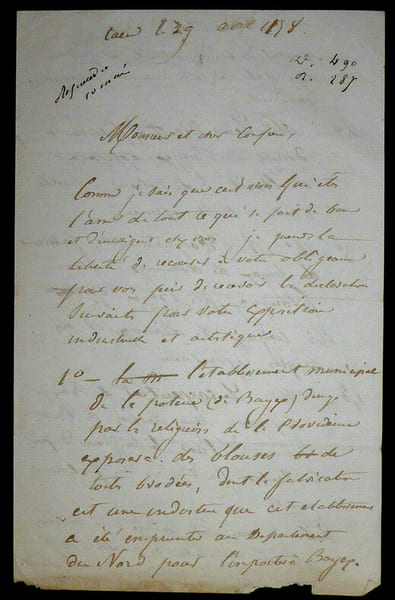 Caen le 29 avril 1858
V. 490
R. 287
Répondu
10 mai
Monsieur et cher Confrère,
Comme je sais que c'est vous qui êtes
l'âme de tout ce qui se fait de bon
et d'intelligent chez vous je prends la
liberté de recourir à votre obligeance
pour vous prier de recevoir la déclaration
suivante pour votre exposition
industrielle et artistique
1º - l'établissement municipal
de la poterie (de Bayeux) dirigé
par les religieuses de la Providence
exposera des blouses de
toile brodées, dont la fabrication
est une industrie que cet établissement
a été emprunter au Département
du Nord pour l'importer à Bayeux.